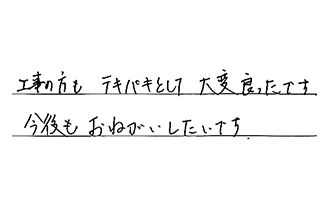 工事の方も テキパキとして 大変良ったです
今後も おねがいしたいです